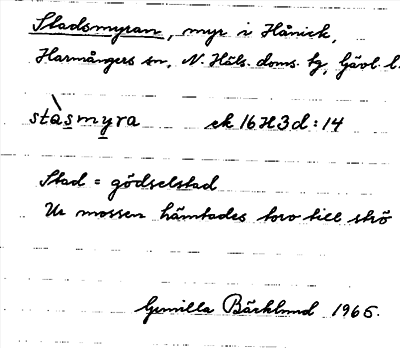 Stadsmyran, myr i Hånick,
Harmångers sn, N. Häls. doms. tg, Gävl. l.
stàsmyra ek 16H3d:14
Stad = gödselstad
Ur mossen hämtades torv till strö
Gunilla Bäcklund 1965.